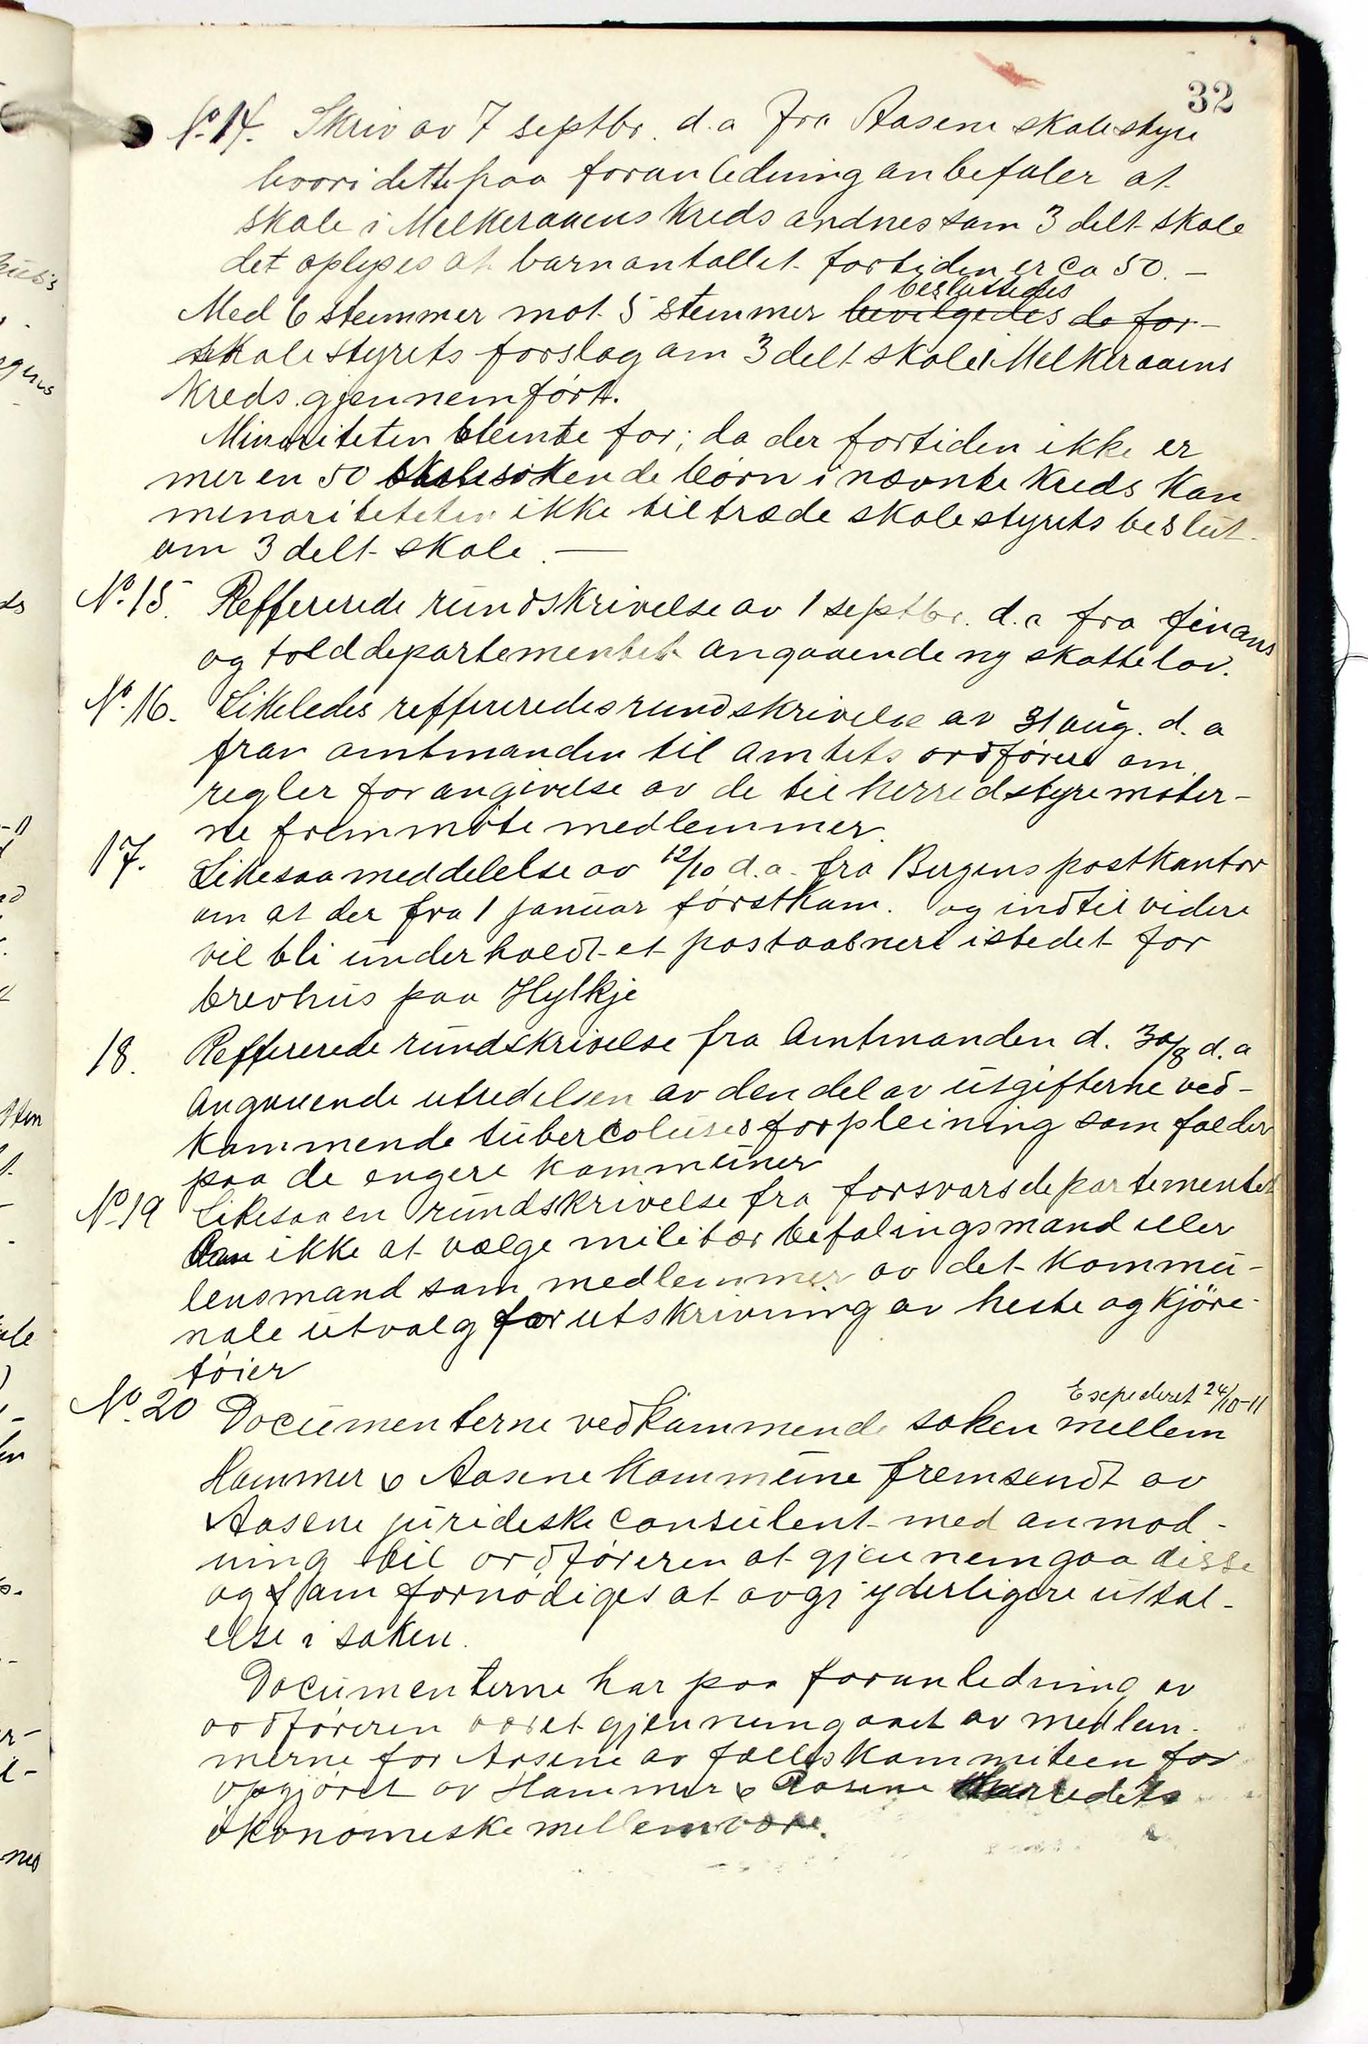 32
No. 14. Skriv av 7 septbr. d.a fra Aasene skolestyre
hvori dette paa foranledning anbefaler at
skole i Melkeraaens Kreds andnes som 3 delt skole
det oplyses at barnantallet fortiden er ca 50. —
besluttedes
Med 6 stemmer mot 5 stemmer bevilgedes de for-
skolestyrets forslag om 3 delt skole i Melkeraaens
Kreds gjennemført.
Minoriteten stemte for; da der fortiden ikke er
mer en 50 skolesøkende børn i nævnte Kreds Kan
minoriteteten ikke tiltræde skolestyrets beslut.
om 3 delt skole. —
No. 15. Reffererede rundskrivelse av 1 septbr. d.a fra finans
og tolddepartementet angaaende ny skattelov.
No. 16. Likeledes reffereredes rundskrivelse av 31 aug. d. a
frav amtmanden til amtets ordførere om
regler for angivelse av de til herredstyremøter-
ne fremmøte medlemmer.
17. Likesaa meddelelse av 12/10 d.a. fra Bergens postkontor
om at der fra 1 januar førstkom. og indtil videre
vil bli underholdt et postaabneri istedet for
brevhus paa Hylkje
18. Reffererede rundskrivelse fra Amtmanden d. 30/8 d.a
angaaende utredelsen av den del av utgifterne ved-
kommende tuberculuses forpleining som falder
paa de engere kommuner
No. 19 Likesaa en rundskrivelse fra forsvarsdepartementet
om ikke at vælge militær befalingsmand eller
lensmand som medlemmer av det kommu-
nale utvalg for utskrivning av heste og kjøre-
tøier
Exspederet 24/10-11
No. 20 Documenterne vedkommende saken mellem
Hammer & Aasene Kommune fremsendt av
Aasene jurideske consulent med anmod-
ning til ordføreren at gjennemgaa disse
og om fornødiges at avgi yderligere uttal-
else i saken.
Documenterne har paa foranledning av
ordføreren været gjennemgaaet av medlem-
merne for Aasene av fælleskommiteen for
opgjøret av Hammer & Aasene Herredets
økonomiske mellemvære.